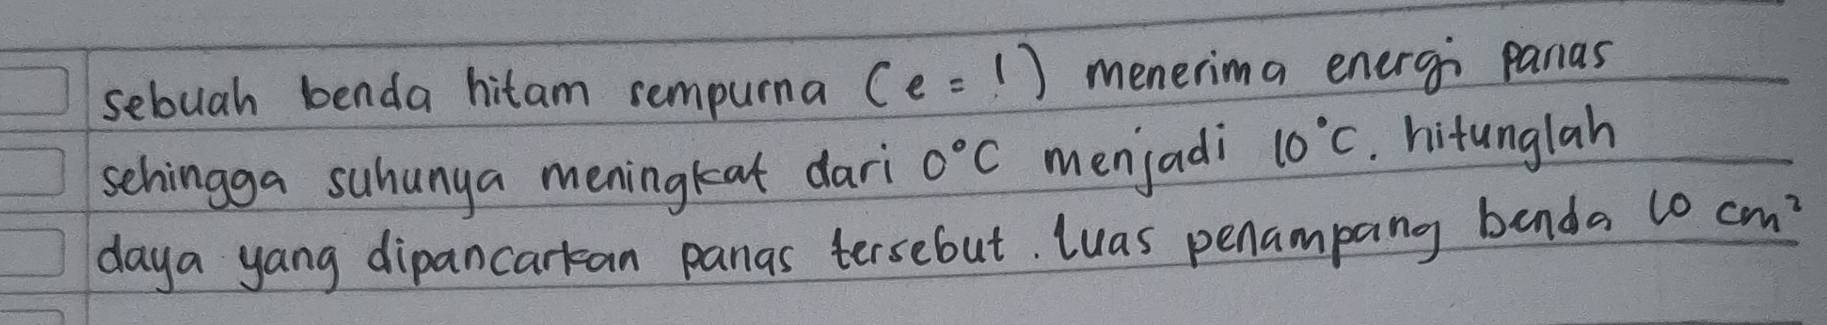 sebuah benda hitam sempurna (e = 1) menerima energi panas
sehingga suhunya meningkat dari 0°C menjadi 10°C. hitunglah
daya yang dipancarkan panas tersebut. luas penampang benda 10 cm²